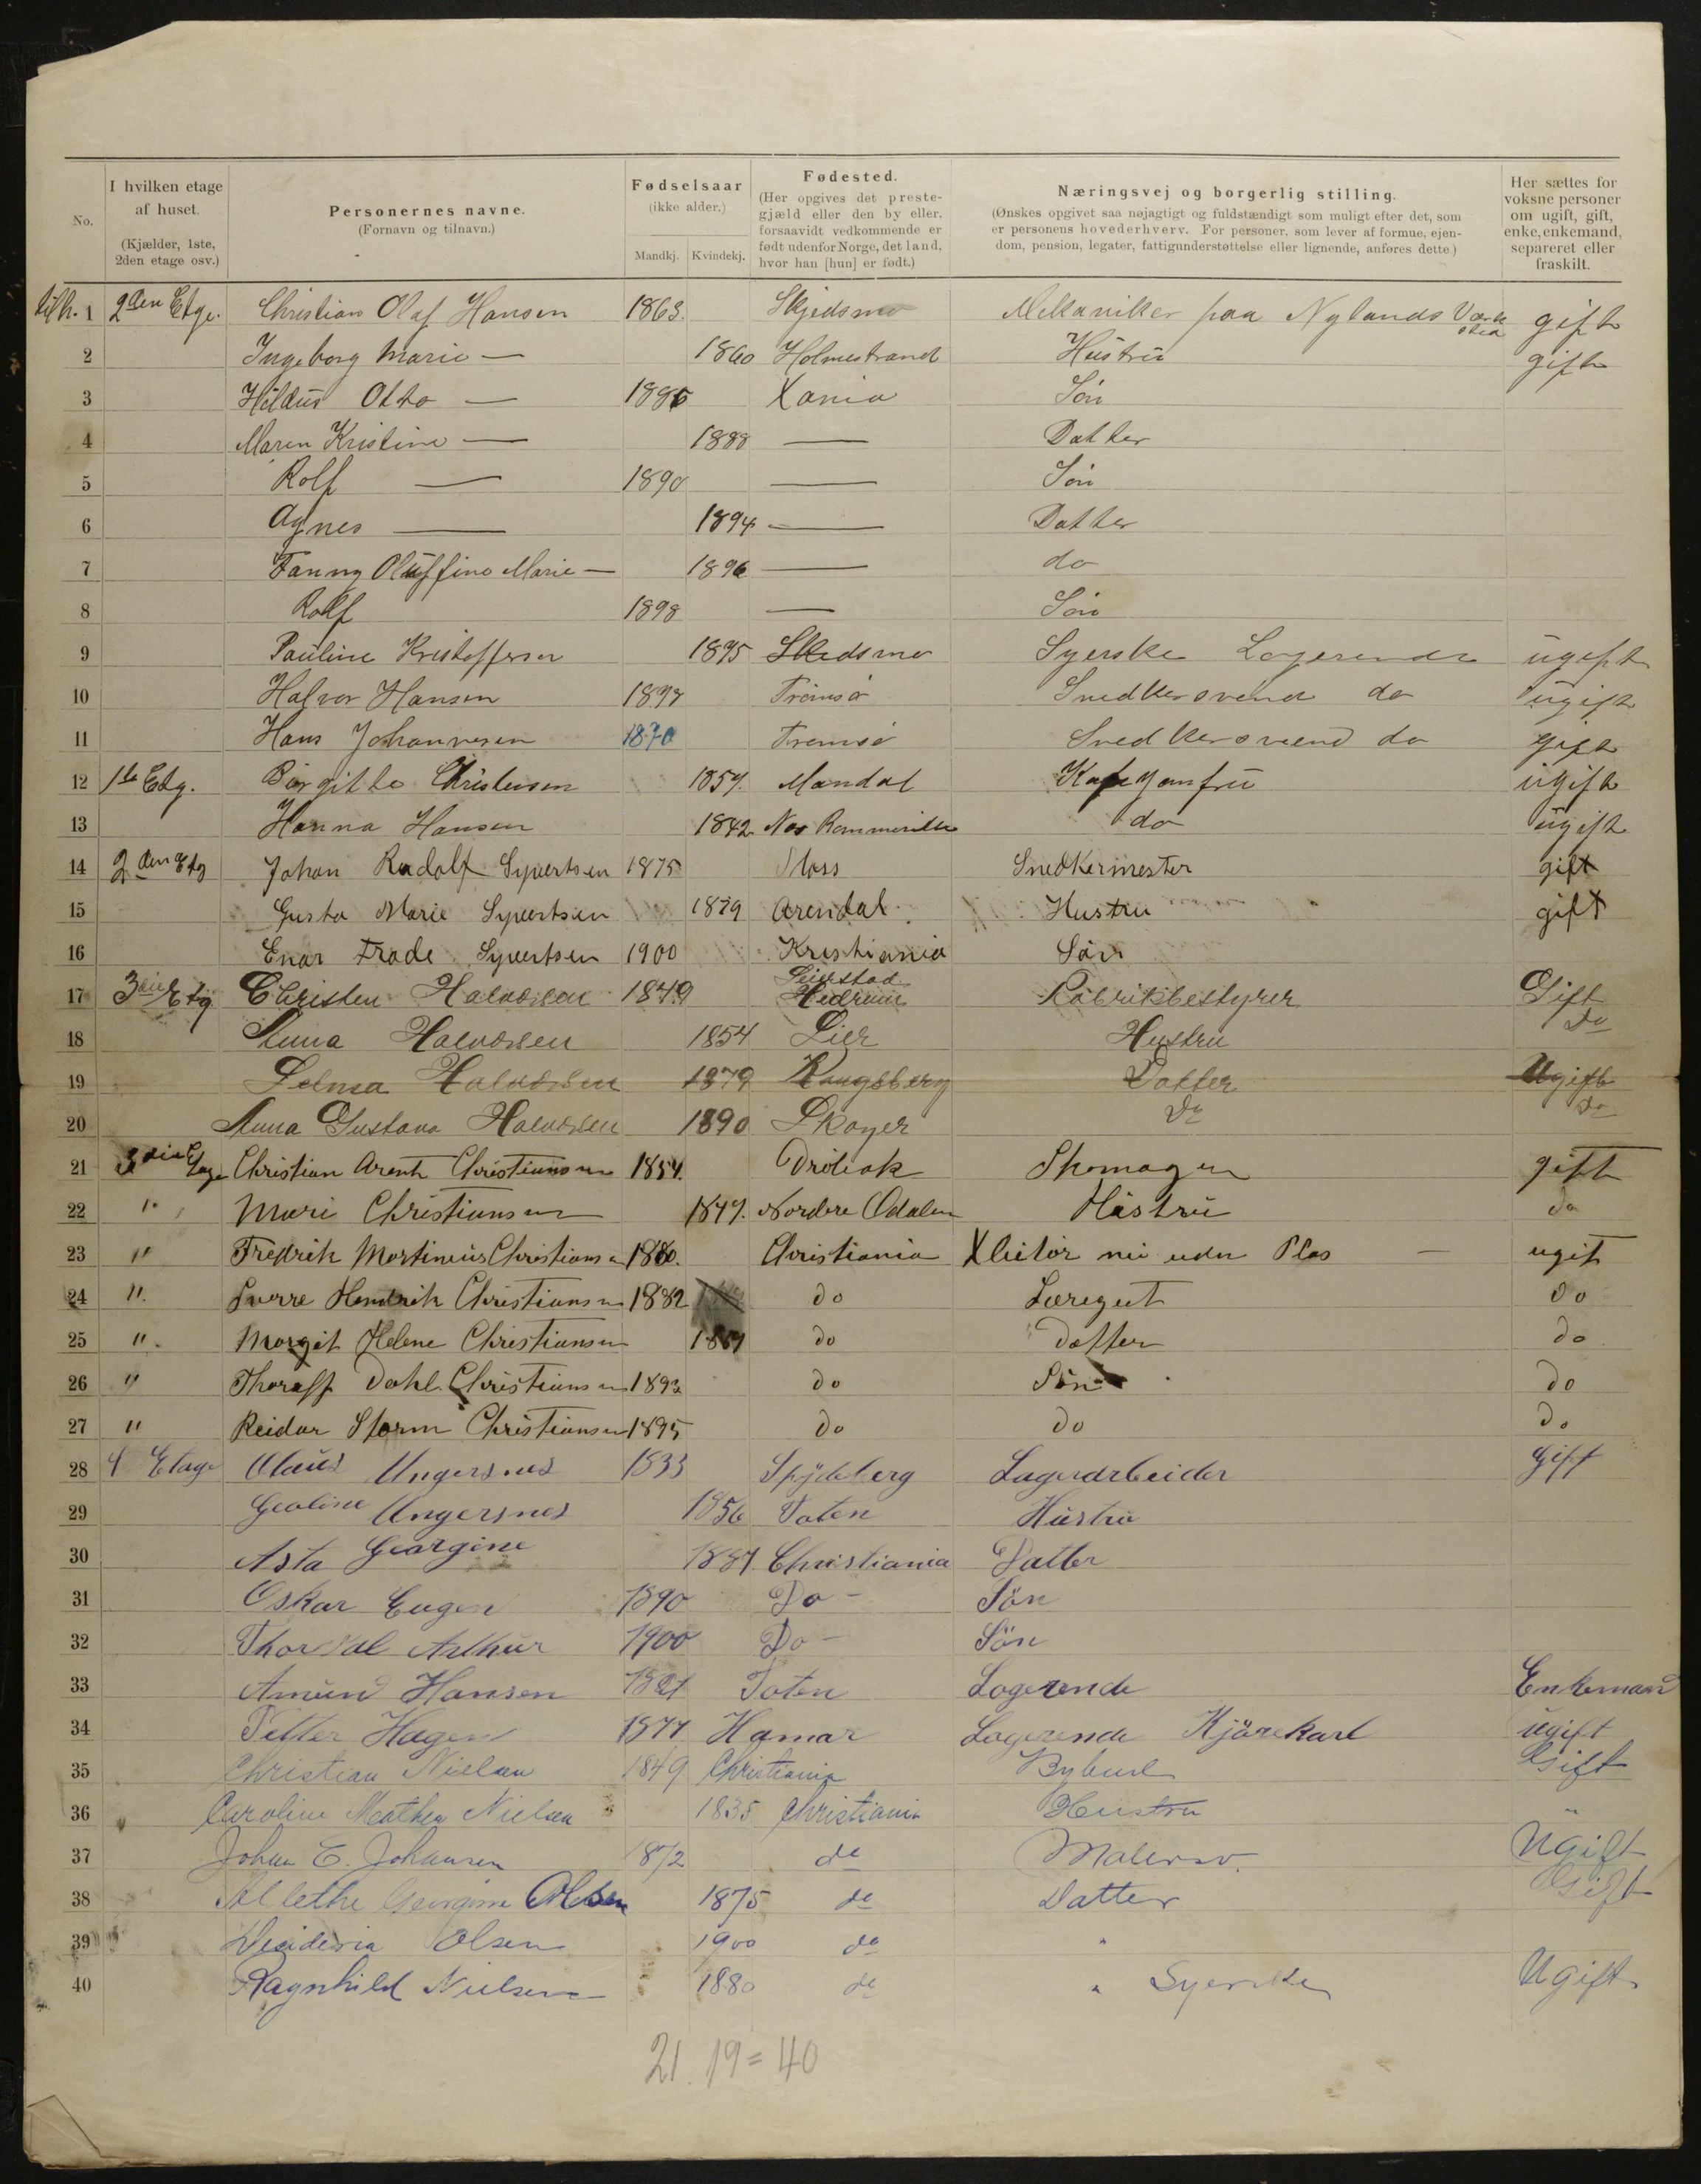 No.
I hvilken etage af huset. (Kjælder, 1ste, 2den etage osv.)
Personernes navne. (Fornavn og tilnavn.)
Fødselsaar (ikke alder.) Mandkj. Kvindekj.
Fødested. (Her opgives det prestegjæld eller den by eller, forsaavidt vedkommende er født udenfor Norge, det land, hvor han [hun] er født.)
Næringsvej og borgerlig stilling. (Ønskes opgivet saa nøjagtigt og fuldstændigt som muligt efter det, som er personens hovederhverv. For personer, som lever af formue, ejendom, pension, legater, fattigunderstøttelse eller lignende, anføres dette.)
Her sættes for voksne personer om ugift, gift, enke, enkemand, separeret eller fraskilt.
1 2den Etge. Christian Olaf Hansen 1863. Skjedsmo Mekaniker paa Nylands Værksted gift
2 Ingeborg Marie — 1860 Holmestrand Hustru gift
3 Otto — 1886 Xania Søn
4 Maren Kristine — 1888 — Datter
5 Rolf — 1890 — Søn
6 Agnes — 1894 — Datter
7 Fanny Oluffine Marie — 1896 — do
8 Rolf 1898 — Søn
9 Pauline Kristoffersen 1895 Skedsmo Syerske Logerende ugift
10 Halvor Hansen Tromsø Snedkersvend do ugift
11 Hans Johannesen 1870 Tromsø Snedkersvend do gift
12 1ste Etg. Birgitte Christensen Mandal ugift
13 Hanna Hansen 1842 do ugift
14 2den Etg Johan Rudolf Syvertsen 1875 Moss Snedkermester gift
15 Gusta Marie Syvertsen 1879 Arendal. Hustru gift
16 Enar Frode Syvertsen 1900 Kristiania Søn
17 3die Etg Christen Halvorsen 1849 Hedrum Fabrikbestyrer Gift
18 Anna Halvorsen 1854 Lier Hustru Do
19 Selma Halvorsen 1879 Kongsberg Datter Ugift
20 Anna Gustava Halvorsen 1890 Skoger Do Do
21 3die Etage Christian Arent Christiansen Drøbak Skomager gift
22 " Mari Christiansen Nordre Odalen Hustru do
23 " Fredrik Martinius Christiansen 1880. Christiania uden Plas — ugift
24 " Sverre Hendrik Christiansen 1882 do Læregut do
25 " Margit Helene Christiansen do datter do
26 " Thoralf Dahl Christiansen 1892 do Søn do
27 " Reidar Storm Christiansen 1895 do do do
28 4 Etage Olaus Ungersnes 1833 Spydeberg Lagerarbeider Gift
29 Ungersnes 1856 Toten Hustru
30 Asta Georgine Christiania Datter
31 Oskar Eugen 1890 Do - Sön
32 Thorval Arthur 1900 Do - Sön
33 Amund Hansen 1821 Toten Logerende Enkemand
34 Petter Hagen Hamar Logerende Kjörekarl ugift
35 Christian Nielsen 1849 Christiania Bybud Gift
36 Caroline Mathea Nielsen 1835 Christiania Hustru "
37 Johan E. Johansen 1872 do Malersv. Ugift
38 Allethe Georgine Olsen 1875 do Datter Gift
39 Desideria Olsen 1900 do "
40 Ragnhild Nielsen 1880 do " Syerske Ugift
21. 19 = 40